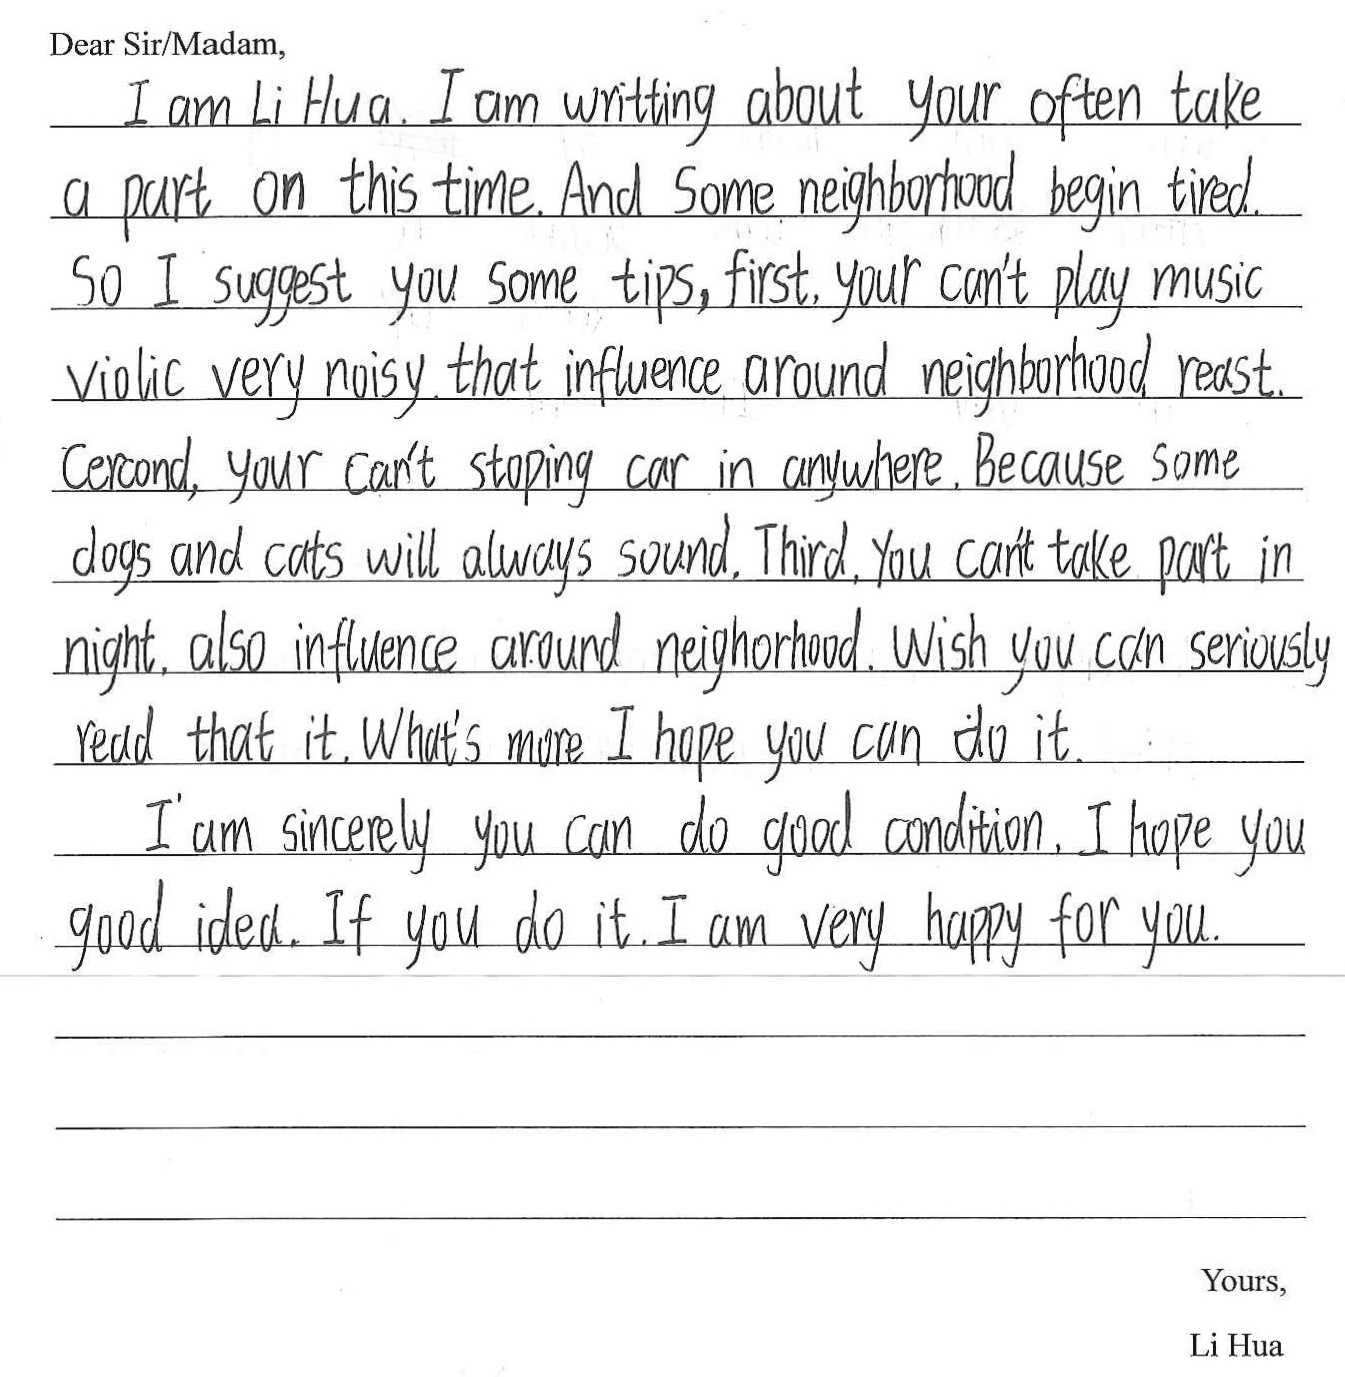 Dear Sir/Madam,
I am Li Hua. I am writting about your often take
a part on this time. And Some neighborhood begin tired.
So I suggest you some tips, first, your can't play music
violic very noisy that influence around neighborhood reast.
Cercond, your can't stoping car in anywhere. Because some
dogs and cats will always sound. Third, You can't take part in
night, also influence around neighorhood. Wish you can seriously
read that it. What's more I hope you can do it.
I'am sincerely you can do good condition. I hope you
good idea. If you do it. I am very happy for you.
Yours,
Li Hua